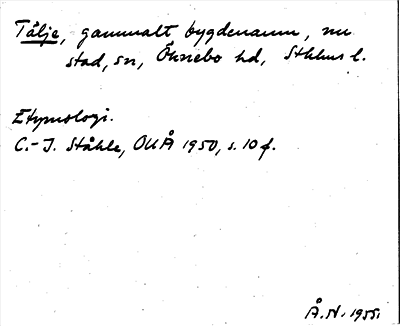 Tälje, gammalt bygdenamn, nu
stad, sn, Öknebo hd, Sthlms l.
Etymologi.
C.-I. Ståhle, OUÅ 1950, s. 10 f.
Å.N. 1955.